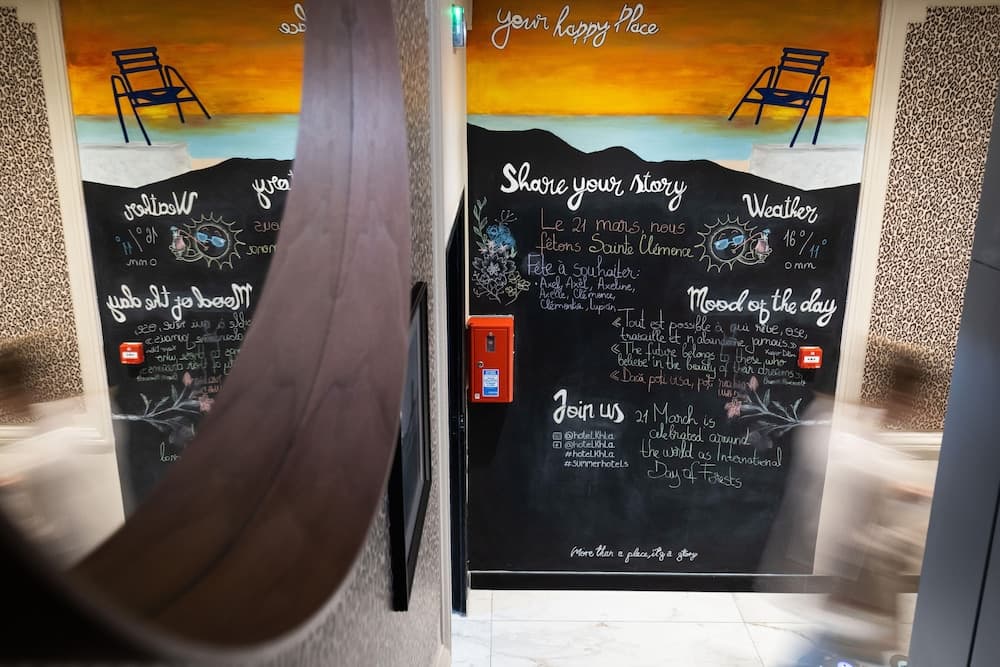 Your happy Place
Share your story
Le 21 mars, nous
fêtons Sainte Clémence
Fête à souhaiter:
• Axel, Axël, Axeline,
Axelle, Clémence,
Clémentia, Lupin,
Weather
16°/11°
0 mm
Mood of the day
« Tout est possible à qui rêve, ose,
travaille et n'abandonne jamais »
« The future belongs to those, who
believe in the beauty of their dreams »
Join us
@hotelKhla
@hotelKhla
#hotelKhla
#summerhotels
21 March is
celebrated around
the world as International
Day of Forests
More than a place, it's a story